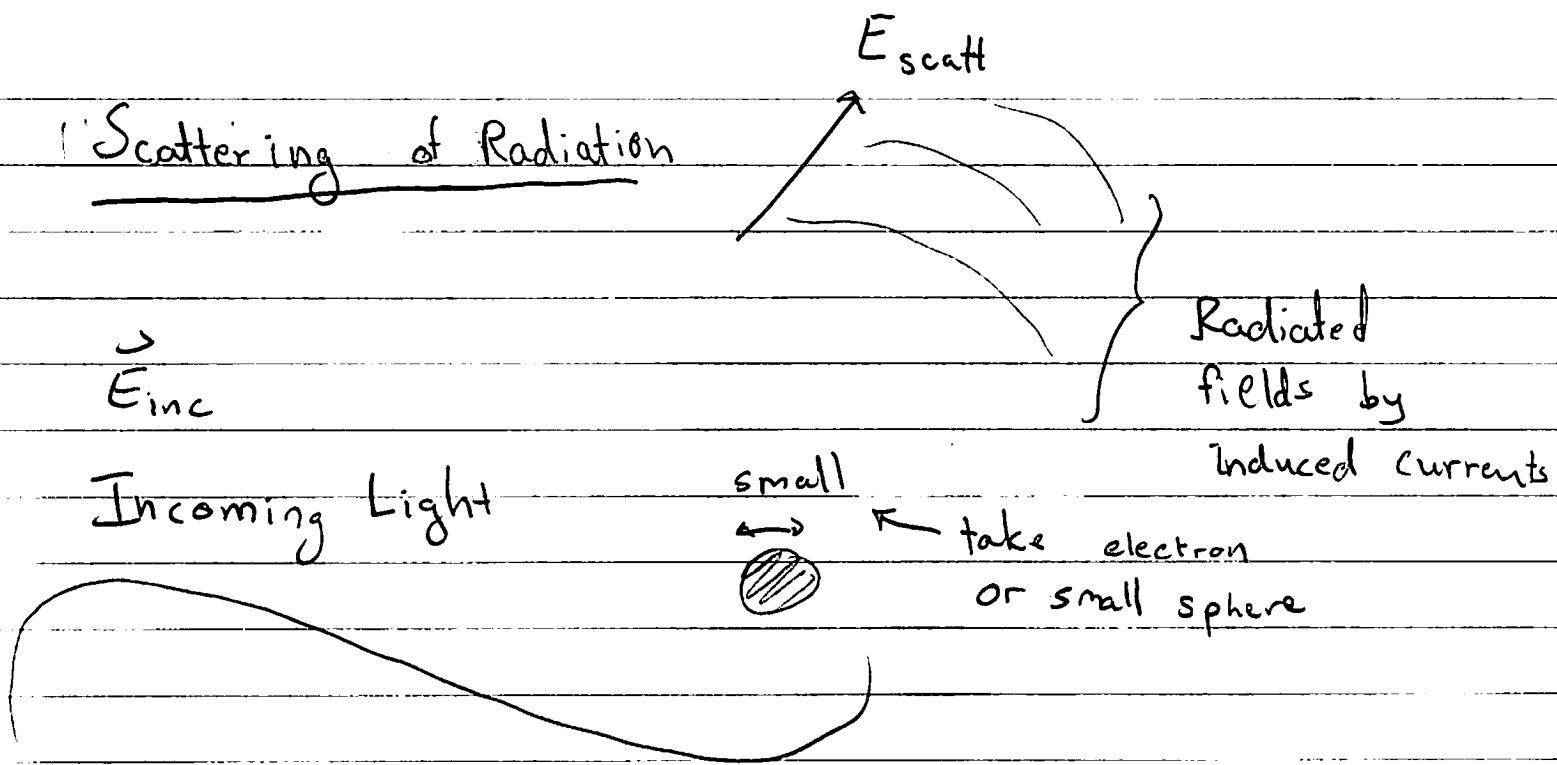 E scatt
Scattering of Radiation
E⃗ inc
Radiated
fields by
Induced currents
Incoming Light
small
take electron
or small sphere